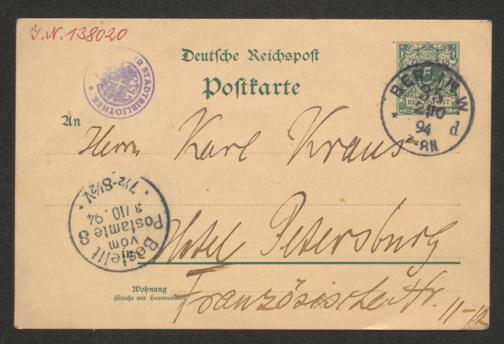 J.N. 138020
Deutsche Reichspost
Postkarte
STADTBIBLIOTHEK
BERLIN W
REICHSPOST
10
94
7-8N
d
An
Herrn Karl Kraus
Bestellt
vom
Postamte 8
3/10.94
7½-8½V
in
Hotel Petersburg
Wohnung
(Straße und Hausnummer)
Französischestr.